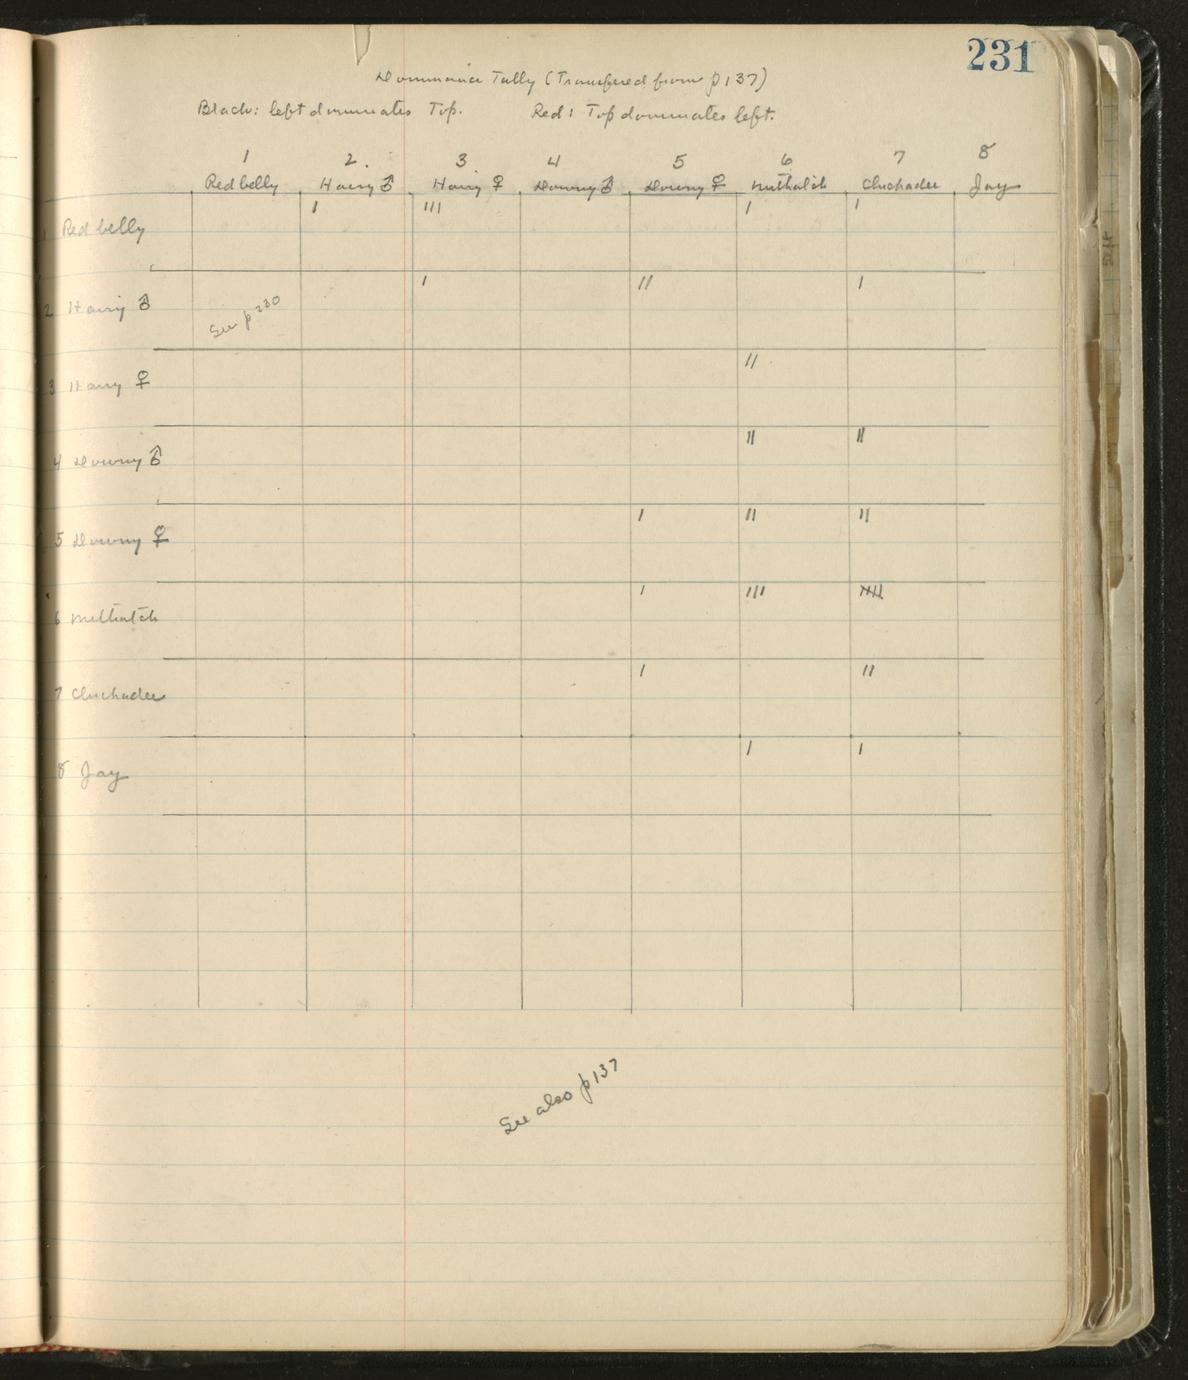 231
Dominance Tally (Transfered from p 137)
Black: left dominates Top. Red: Top dominates left.
1 2. 3 4 5 6 7 8
Redbelly Hairy ♂ Hairy ♀ Downy ♂ Downy ♀ Nuthatch Chickadee Jay
1 Red belly I III I I
2 Hairy ♂ I II I
See p 230
3 Hairy ♀ II
4 Downy ♂ II II
5 Downy ♀ I II II
6 Nuthatch I III IIII
7 Chickadee I II
8 Jay I I
See also p 137